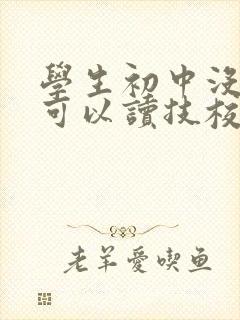 學生初中没
可以讀技校
老羊愛喫鱼